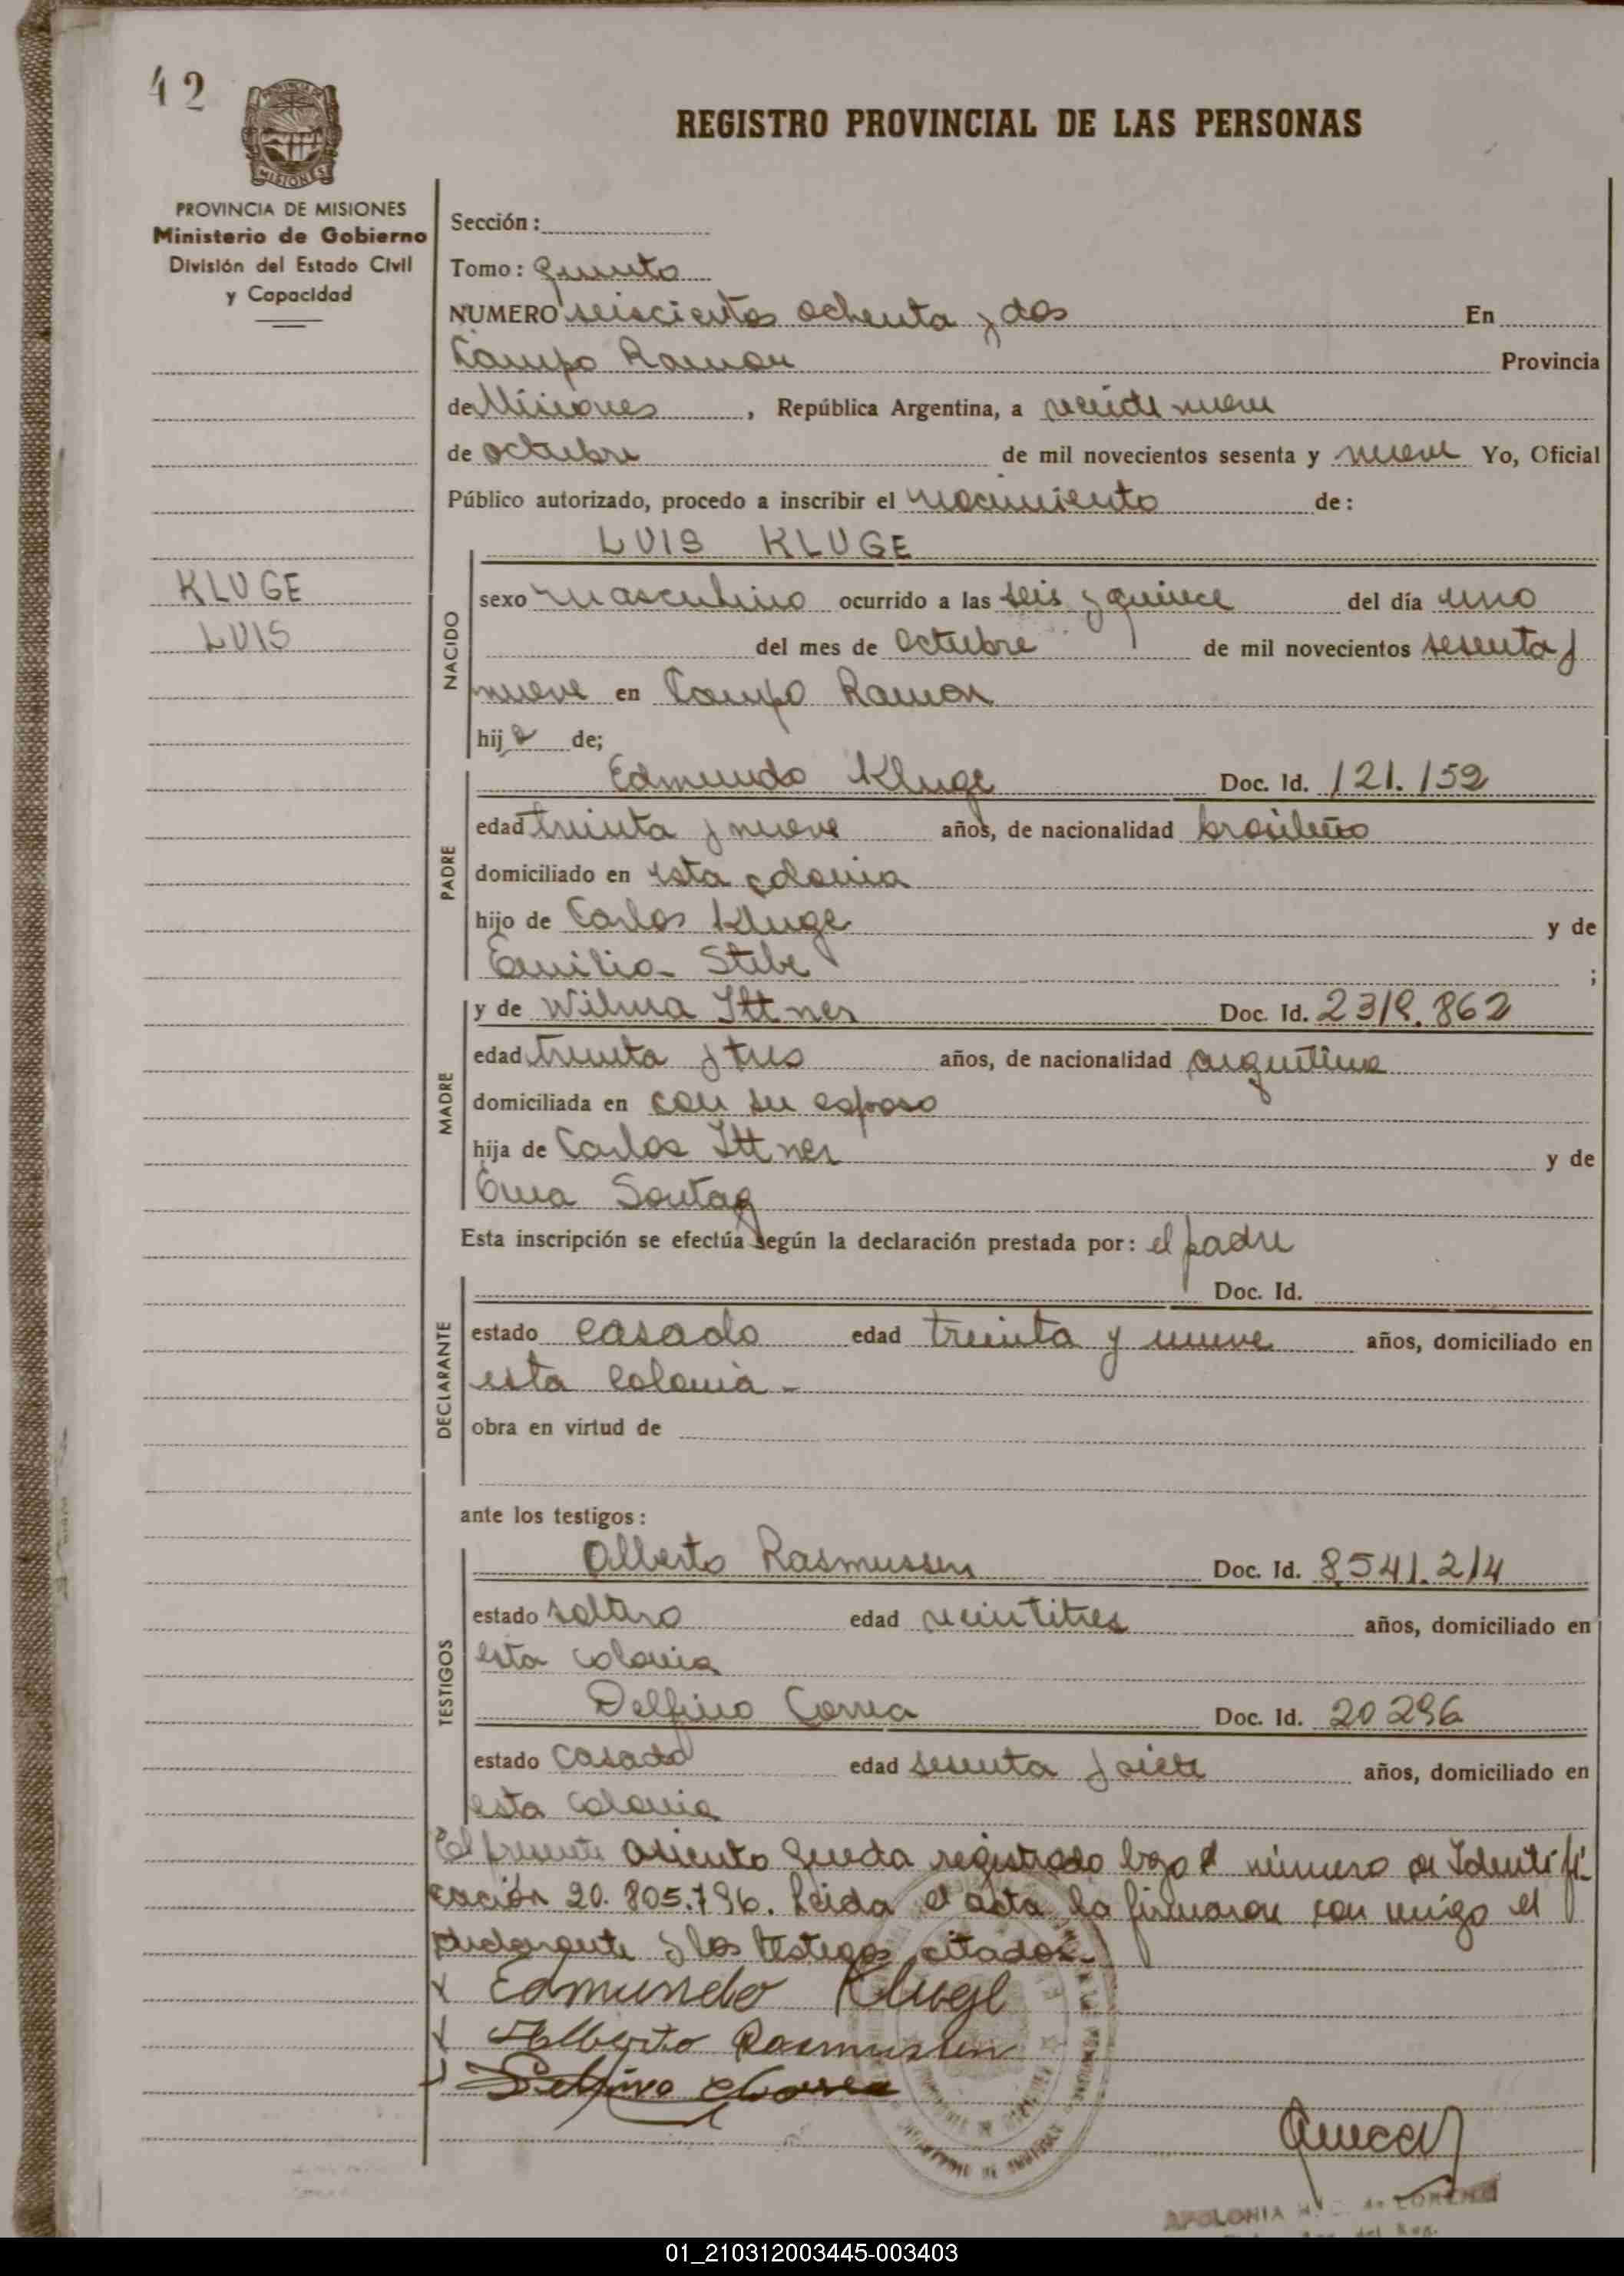 42
REGISTRO PROVINCIAL DE LAS PERSONAS
MISIONES
PROVINCIA DE MISIONES
Ministerio de Gobierno
División del Estado Civil
y Capacidad
Sección:
Tomo: Quinto
NUMERO seiscientos ochenta y dos En
Campo Ramon Provincia
de Misiones, República Argentina, a veinte nueve
de octubre de mil novecientos sesenta y nueve Yo, Oficial
Público autorizado, procedo a inscribir el nacimiento de:
LUIS KLUGE
KLUGE
LUIS
NACIDO
sexo masculino ocurrido a las seis y quince del día uno
del mes de Octubre de mil novecientos sesenta y
nueve en Campo Ramon
hijo de;
PADRE
Edmundo Kluge Doc. Id. 121.152
edad treinta y nueve años, de nacionalidad brasileño
domiciliado en esta colonia
hijo de Carlos Kluge y de
Emilia Stibe ;
MADRE
y de Wilma Ittner Doc. Id. 2319.862
edad treinta y tres años, de nacionalidad argentina
domiciliada en con su esposo
hija de Carlos Ittner y de
Ema Sontag
Esta inscripción se efectúa según la declaración prestada por: el padre
Doc. Id.
DECLARANTE
estado casado edad treinta y nueve años, domiciliado en
esta colonia -
obra en virtud de
ante los testigos:
TESTIGOS
Alberto Rasmussen Doc. Id. 8.541.214
estado soltero edad veintitres años, domiciliado en
esta colonia
Delfino Correa Doc. Id. 20296
estado casado edad sesenta y siete años, domiciliado en
esta colonia
El presente asiento queda registrado bajo el número de Identifi-
cación 20.805.796. Leida el acta la firmaron con migo el
declarante y los testigos citados.
x Edmundo Kluge
x Alberto Rasmussen
Delfino Correa
APOLONIA
01_210312003445-003403